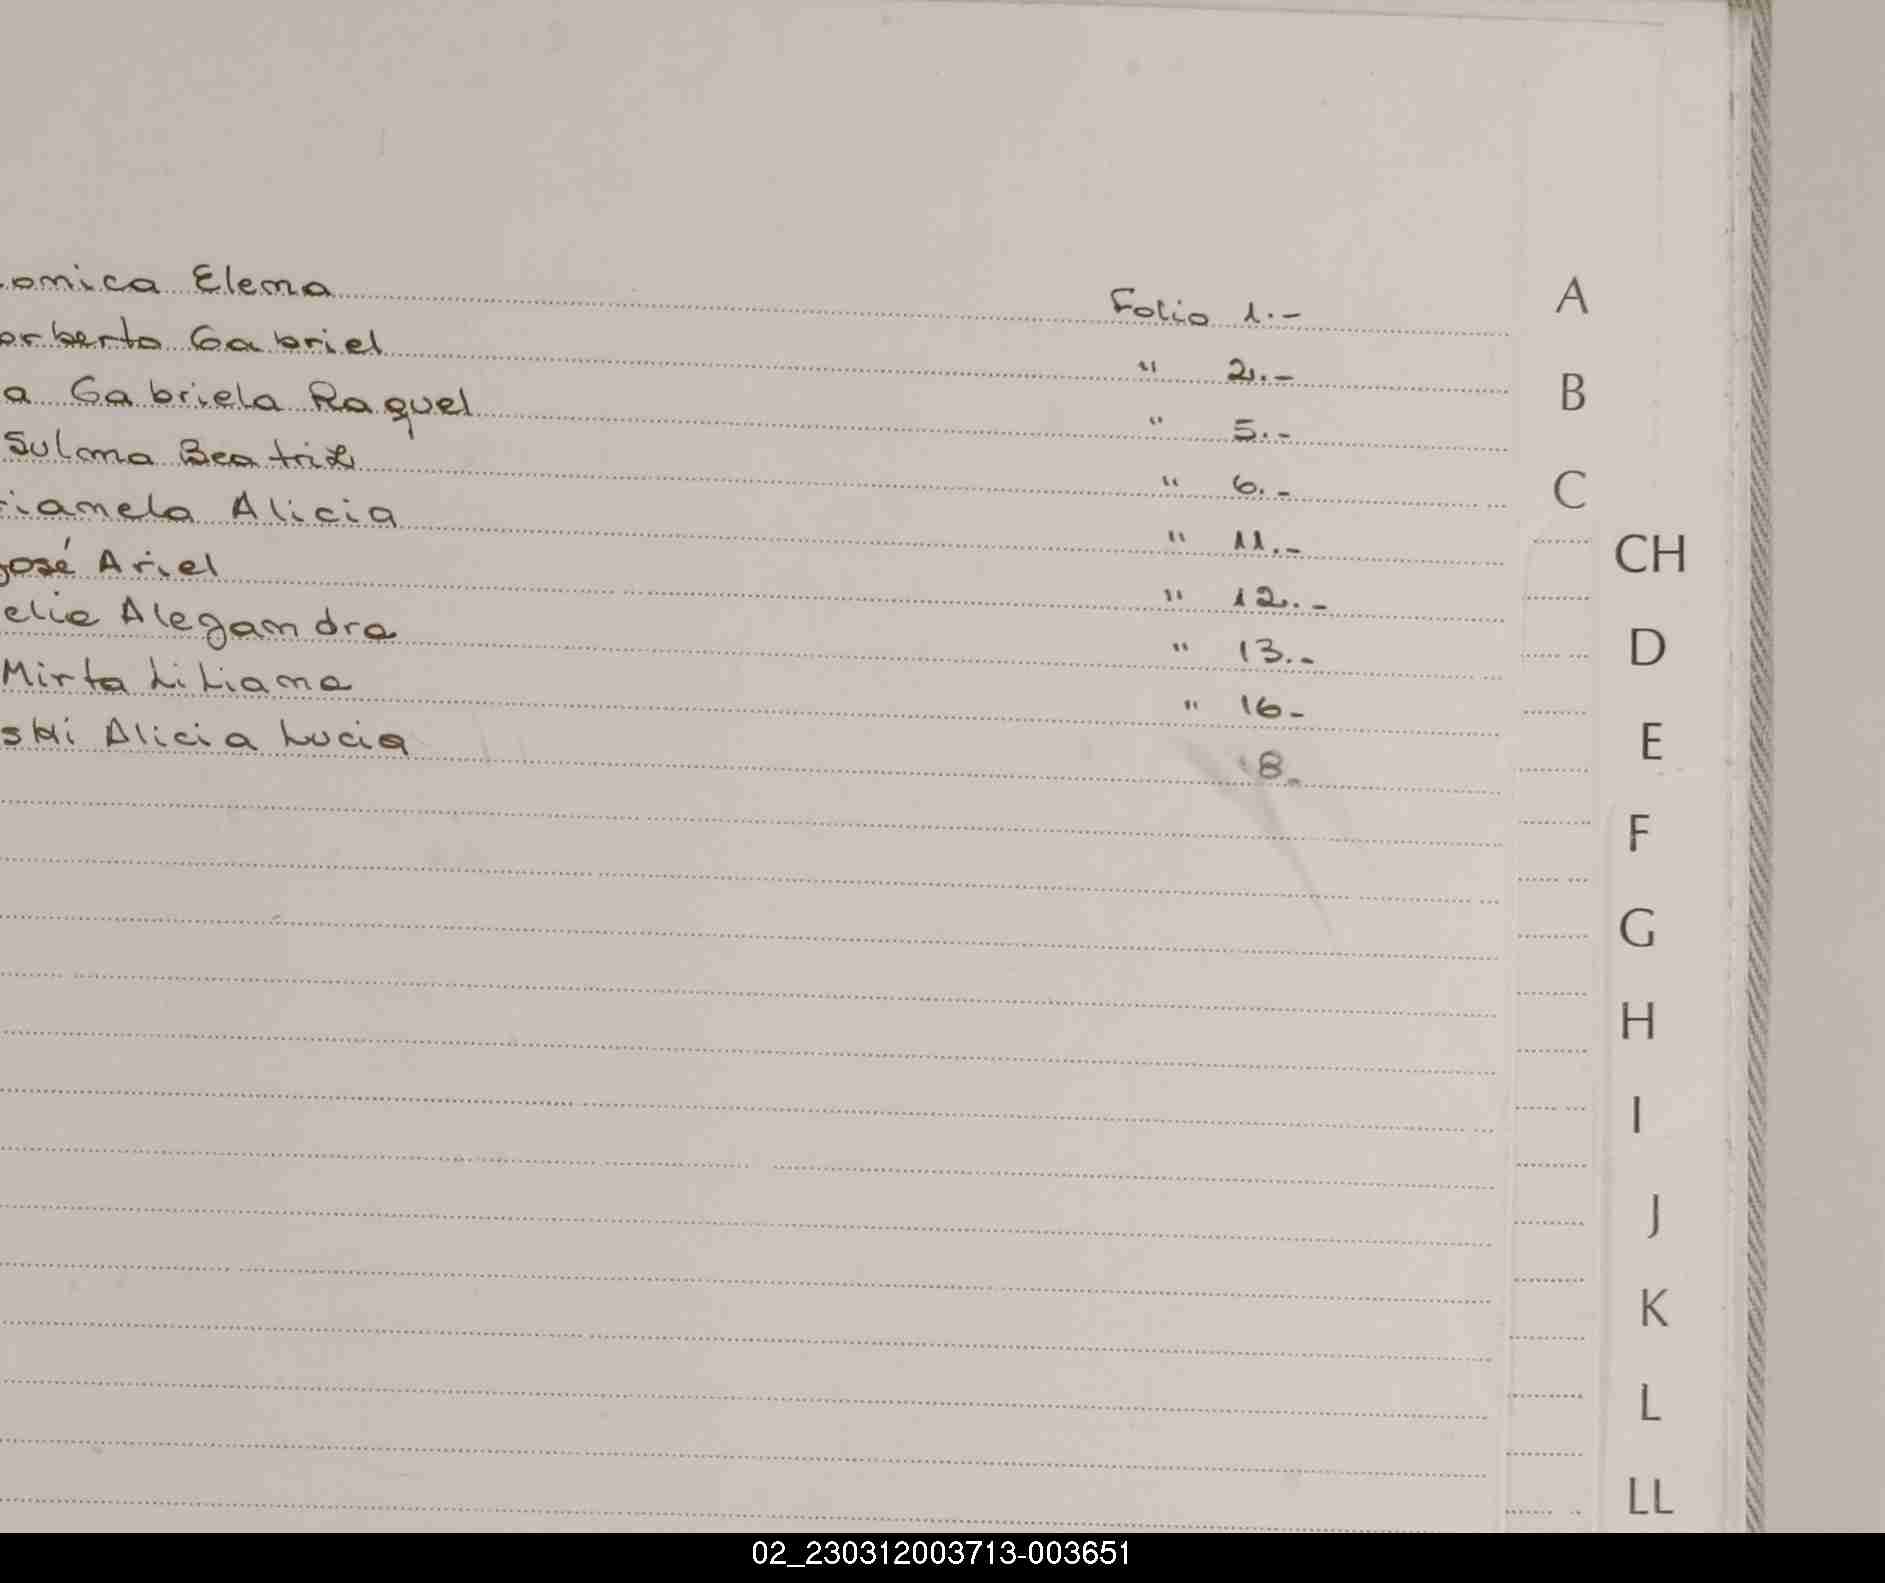 onica Elena Folio 1.-
orberto Gabriel " 2.-
a Gabriela Raquel " 5.-
Sulma Beatriz " 6.-
rianela Alicia " 11.-
José Ariel " 12.-
elia Alejandra " 13.-
Mirta Liliana " 16-
ski Alicia Lucia 18.
A
B
C
CH
D
E
F
G
H
I
J
K
L
LL
02_230312003713-003651